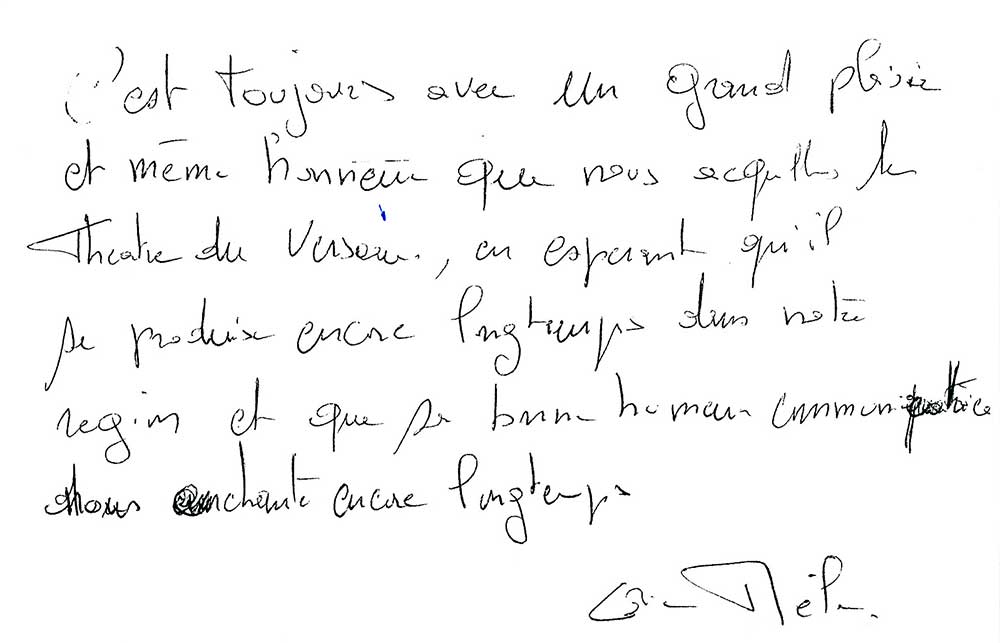 C'est toujours avec un grand plaisir
et même honneur que nous acquillons le
Theatre du Versoir, en esperant qu'il
se produise encore longtemps dans notre
region et que sa bonne humeur communicatrice
nous enchante encore longtemps